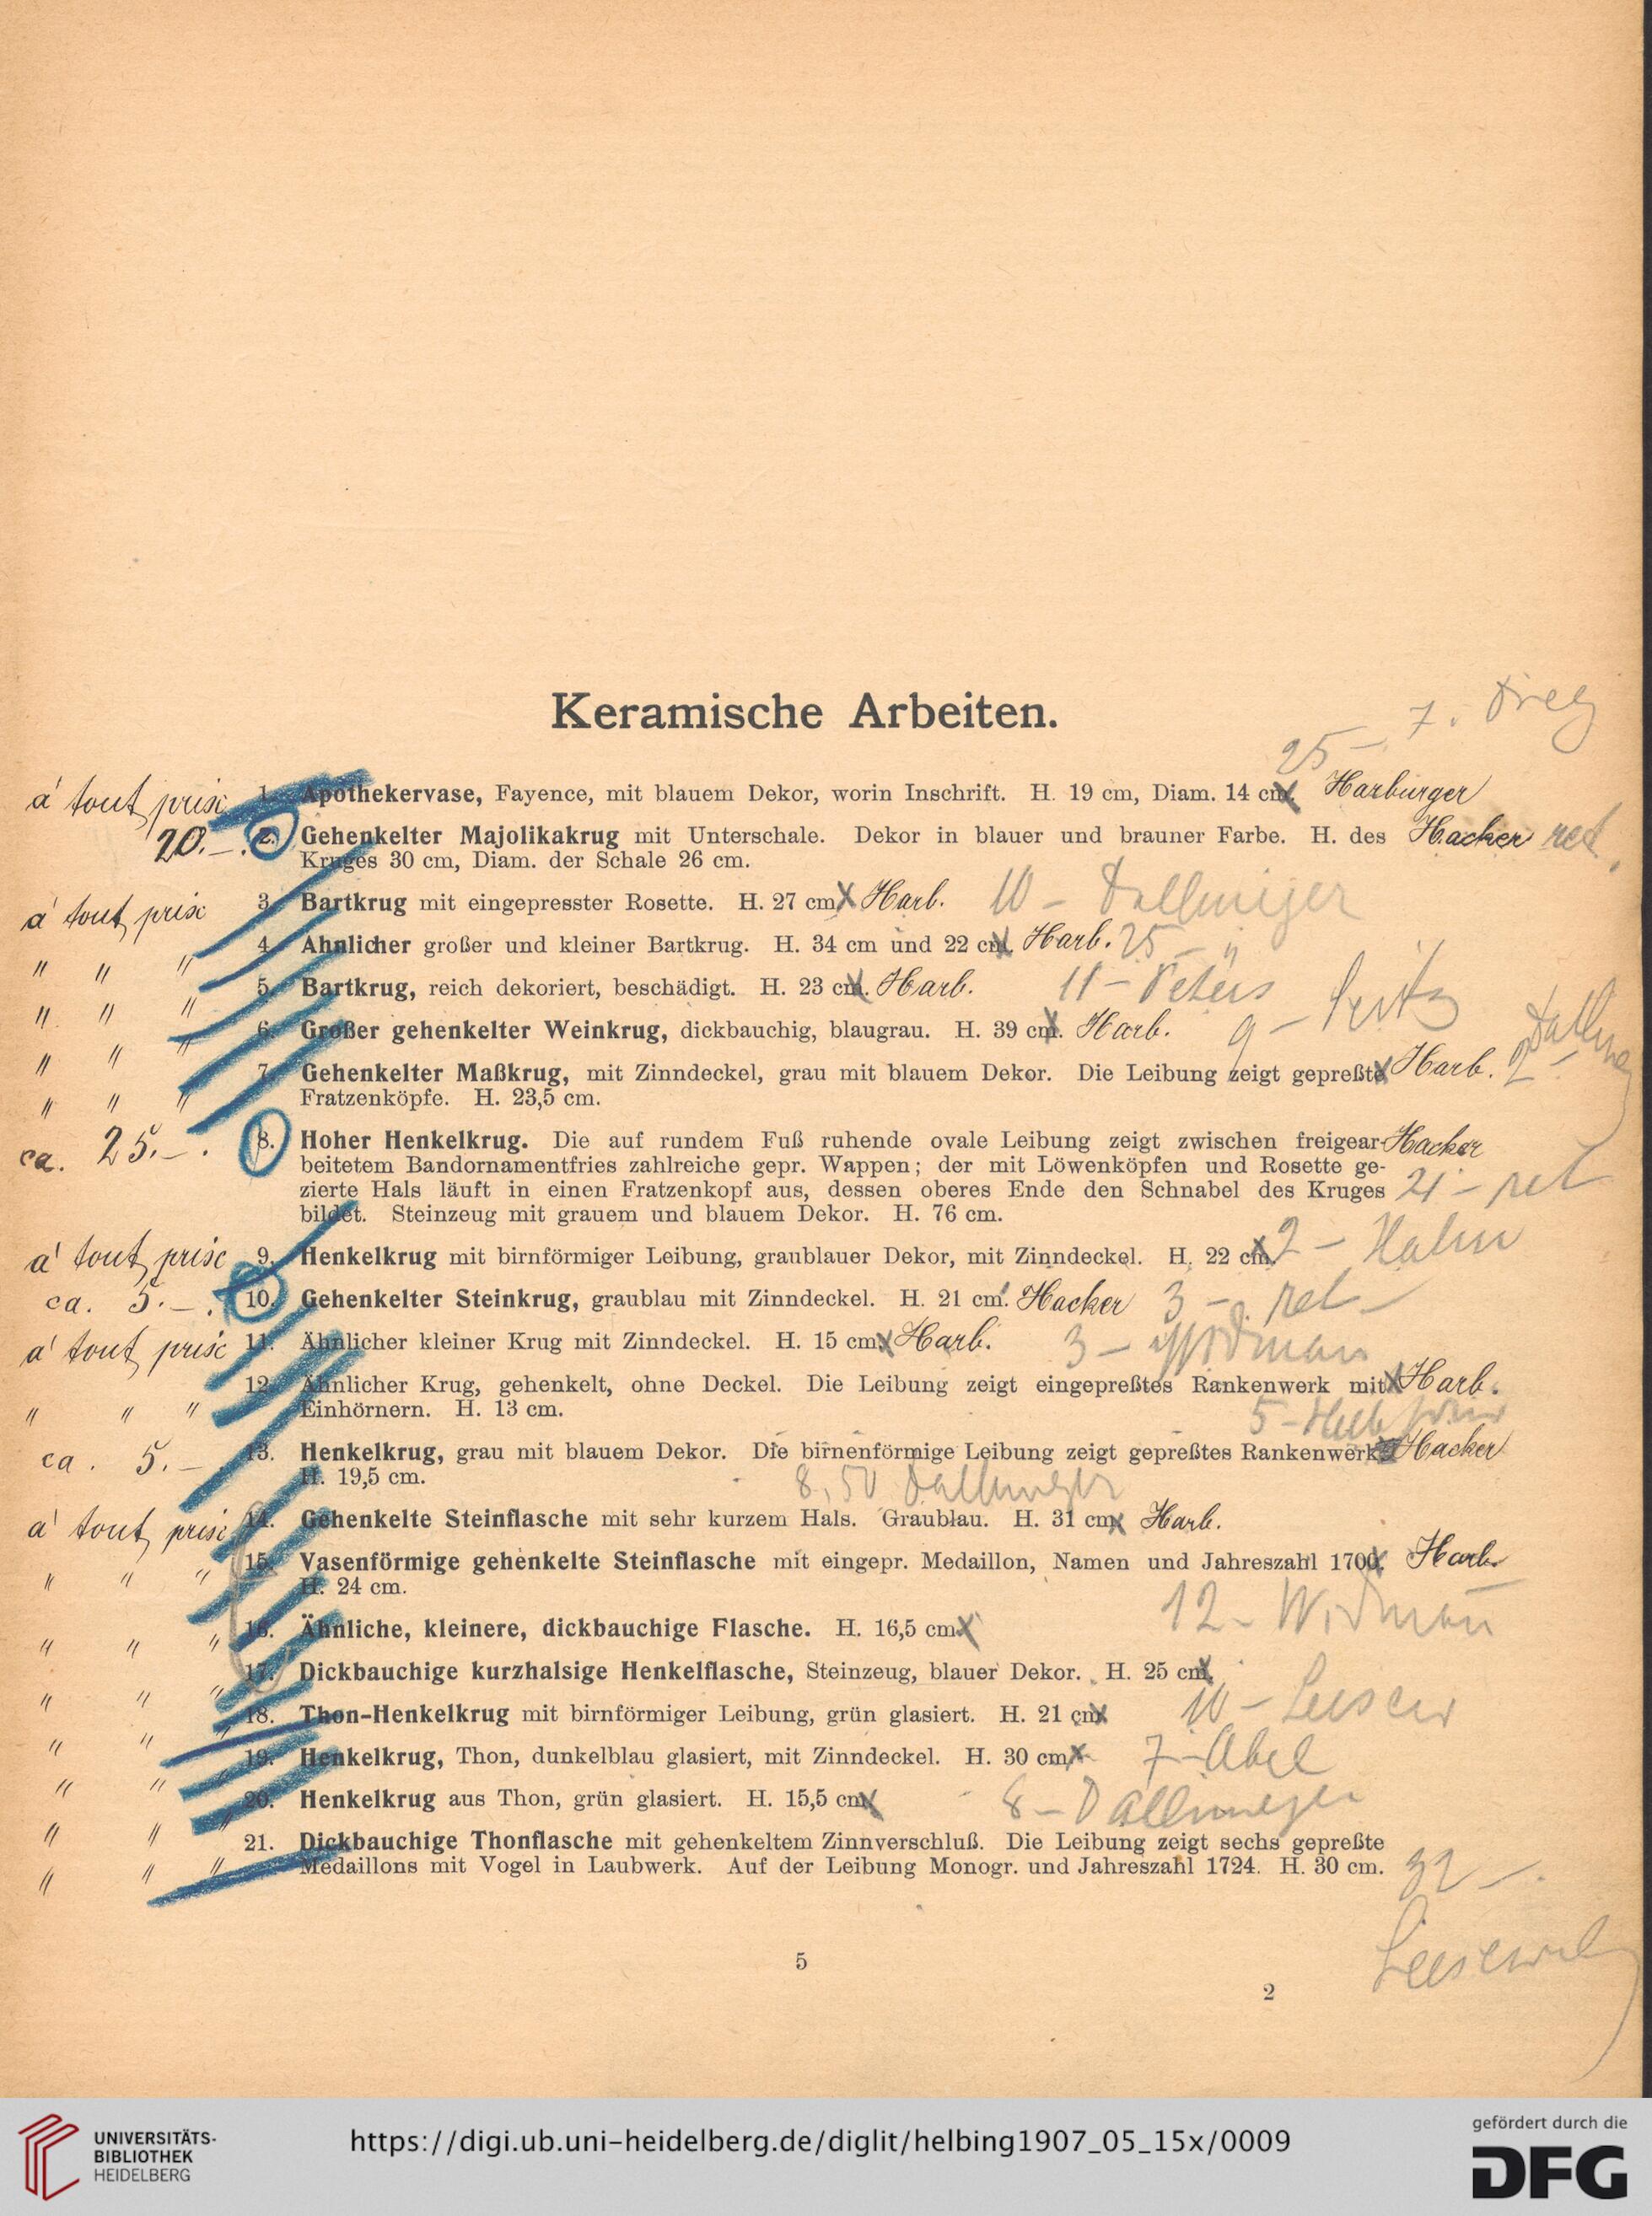 7.
Keramische Arbeiten.
25 –
à tout prix 1. Apothekervase, Fayence, mit blauem Dekor, worin Inschrift. H. 19 cm, Diam. 14 cm. Harburger
20.– . 2. Gehenkelter Majolikakrug mit Unterschale. Dekor in blauer und brauner Farbe. H. des Hacker ret.
Kruges 30 cm, Diam. der Schale 26 cm.
à tout prix 3. Bartkrug mit eingepresster Rosette. H. 27 cm. Harb. 10 – Dallmeijer
" " " 4. Ähnlicher großer und kleiner Bartkrug. H. 34 cm und 22 cm. Harb. 25 – "
" " " 5. Bartkrug, reich dekoriert, beschädigt. H. 23 cm. Harb. 11 – Peters
" " " 6. Großer gehenkelter Weinkrug, dickbauchig, blaugrau. H. 39 cm. Harb. 9 –
" " " 7. Gehenkelter Maßkrug, mit Zinndeckel, grau mit blauem Dekor. Die Leibung zeigt gepreßte Harb. 2 –
Fratzenköpfe. H. 23,5 cm.
ca. 25.– . 8. Hoher Henkelkrug. Die auf rundem Fuß ruhende ovale Leibung zeigt zwischen freigear- Hacker
beitetem Bandornamentfries zahlreiche gepr. Wappen; der mit Löwenköpfen und Rosette ge-
zierte Hals läuft in einen Fratzenkopf aus, dessen oberes Ende den Schnabel des Kruges 21 – ret
bildet. Steinzeug mit grauem und blauem Dekor. H. 76 cm.
à tout prix 9. Henkelkrug mit birnförmiger Leibung, graublauer Dekor, mit Zinndeckel. H. 22 cm. 2 – Hahn
ca. 5.– . 10. Gehenkelter Steinkrug, graublau mit Zinndeckel. H. 21 cm. Hacker 3 – ret
à tout prix 11. Ähnlicher kleiner Krug mit Zinndeckel. H. 15 cm. Harb. 3 – Widman
" " " 12. Ähnlicher Krug, gehenkelt, ohne Deckel. Die Leibung zeigt eingepreßtes Rankenwerk mit Harb.
Einhörnern. H. 13 cm. 5 –
ca. 5.– 13. Henkelkrug, grau mit blauem Dekor. Die birnenförmige Leibung zeigt gepreßtes Rankenwerk. Hacker
H. 19,5 cm. 8,50 Dallmeijer
à tout prix 14. Gehenkelte Steinflasche mit sehr kurzem Hals. Graublau. H. 31 cm. Harb.
" " " 15. Vasenförmige gehenkelte Steinflasche mit eingepr. Medaillon, Namen und Jahreszahl 1700. Harb.
H. 24 cm.
" " " 16. Ähnliche, kleinere, dickbauchige Flasche. H. 16,5 cm. 12 – Widman
" " " 17. Dickbauchige kurzhalsige Henkelflasche, Steinzeug, blauer Dekor. H. 25 cm.
" " " 18. Thon-Henkelkrug mit birnförmiger Leibung, grün glasiert. H. 21 cm. 10 –
" " 19. Henkelkrug, Thon, dunkelblau glasiert, mit Zinndeckel. H. 30 cm. 7 – Abel
" " 20. Henkelkrug aus Thon, grün glasiert. H. 15,5 cm. 8 – Dallmeijer
" " " 21. Dickbauchige Thonflasche mit gehenkeltem Zinnverschluß. Die Leibung zeigt sechs gepreßte
Medaillons mit Vogel in Laubwerk. Auf der Leibung Monogr. und Jahreszahl 1724. H. 30 cm. 32 – .
5
2
UNIVERSITÄTS-
BIBLIOTHEK
HEIDELBERG
https://digi.ub.uni-heidelberg.de/diglit/helbing1907_05_15x/0009
gefördert durch die
DFG